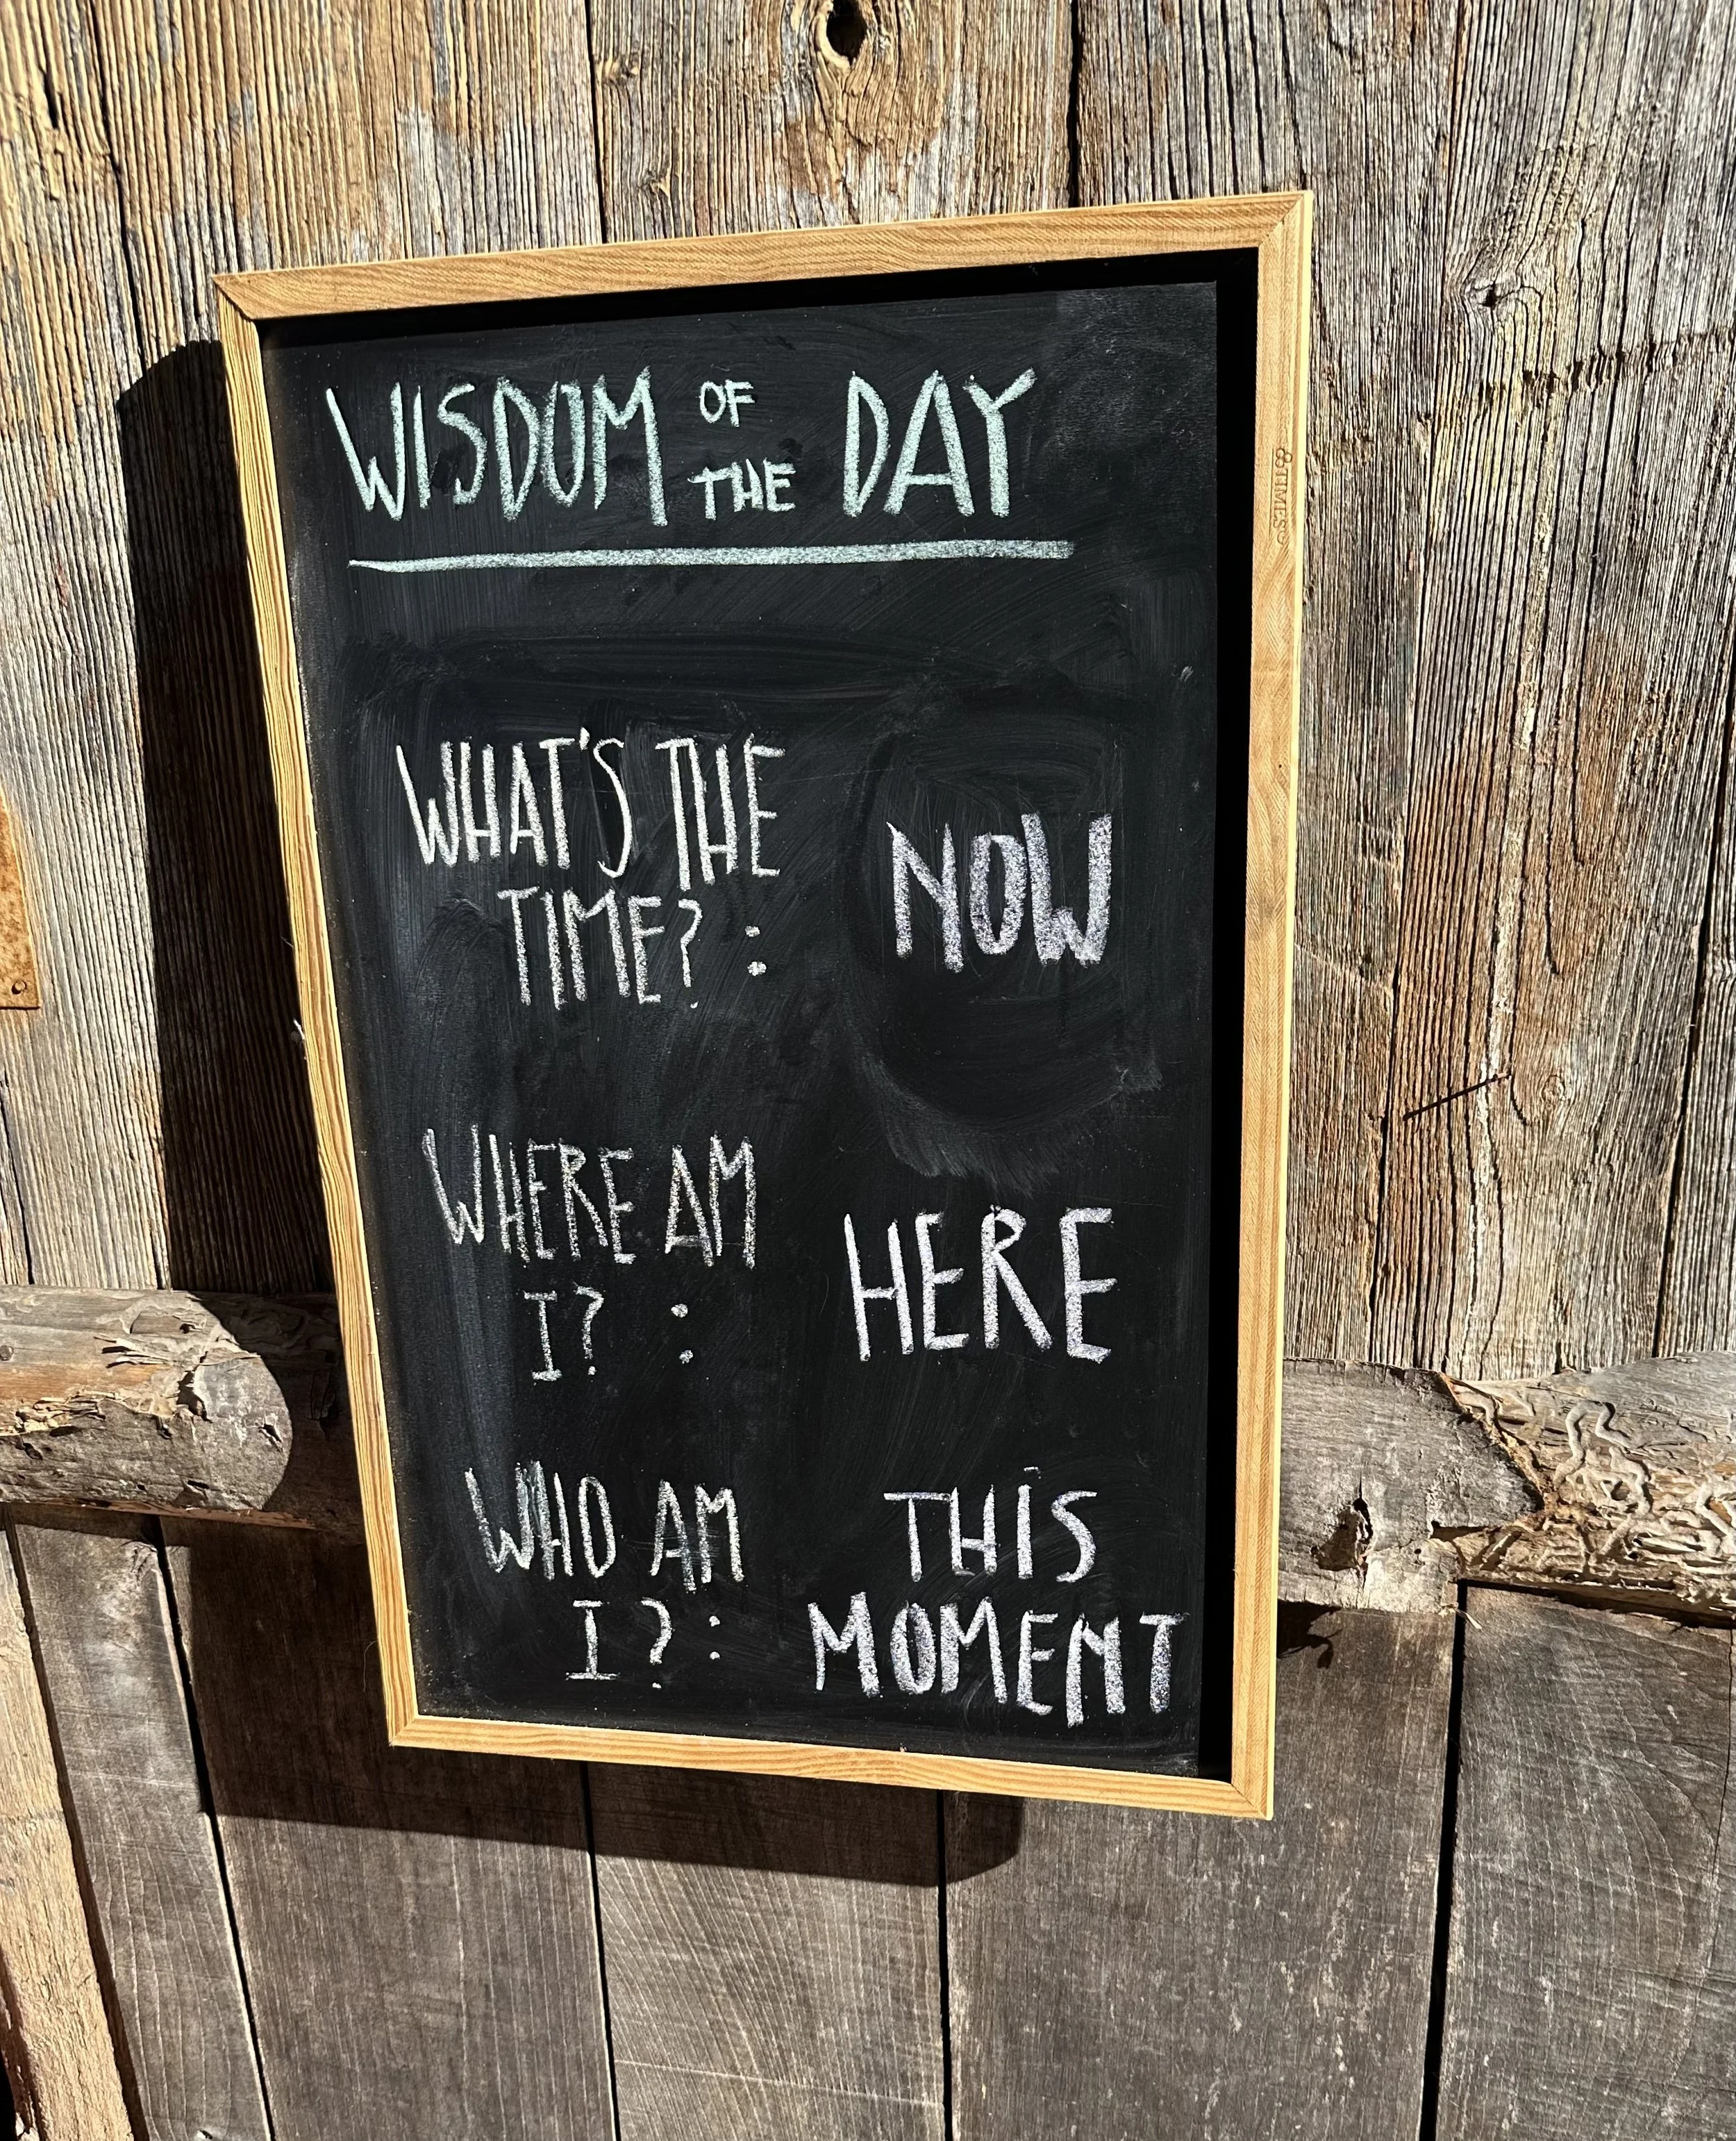 WISDOM OF THE DAY
WHAT'S THE
TIME? : NOW
WHERE AM
I? : HERE
WHO AM THIS
I? : MOMENT